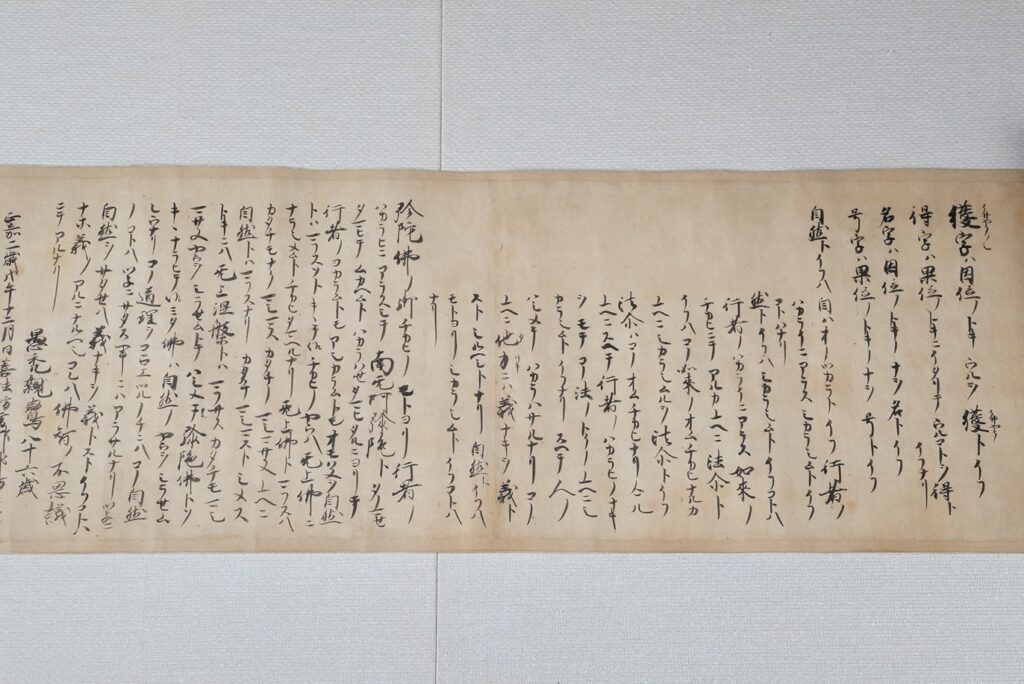 獲字ハ因位ノトキウルヲ獲トイフ
得字ハ果位ノトキニイタリテウルコトヲ得トイフナリ
名字ハ因位ノトキノナヲ名トイフ
号字ハ果位ノトキノナヲ号トイフ
自然トイフハ自ハオノツカラトイフ行者ノ
ハカライニアラスシカラシムトイフ
コトハナリ
然トイフハシカラシムトイフコトハ
行者ノハカライニアラス如来ノ
チカヒニテアルカユヘニ法尓ト
イフハコノ如来ノオムチカヒナルカ
ユヘニシカラシムルヲ法尓トイフ
法尓ハコノオムチカヒナリケル
ユヘニスヘテ行者ノハカラヒノナキ
ヲモチテコノ法ノトクノユヘニシ
カラシムトイフナリスヘテ人ノ
ハシメテハカラハサルナリコノ
ユヘニ他力ニハ義ナキヲ義ト
ストシルヘシトナリ自然トイフハ
モトヨリシカラシムトイフコトハ
ナリ
弥陀佛ノ御チカヒノモトヨリ行者ノ
ハカラヒニアラスシテ南无阿弥陀佛トタノマセ
タマヒテムカヘムトハカラハセタマヒタルニヨリテ
行者ノヨカラムトモアシカラムトモオモハヌヲ自然
トハマフスソトキキテ候チカヒノヤウハ无上佛ニ
ナラシメムトチカヒタマヘルナリ无上佛トマフスハ
カタチモナクマシマスカタチノマシマサヌユヘニ
自然トハマフスナリカタチマシマストシメス
トキニハ无上涅槃トハマフサスカタチモマシ
マサヌヤウヲシラセムトテハシメテ弥陀佛トソ
キキナラヒテ候ミタ佛ハ自然ノヤウヲシラセム
レウナリコノ道理ヲココロエツルノチニハコノ自然
ノコトハツネニサタスヘキニハアラサルナリツネニ
自然ヲサタセハ義ナキヲ義トストイフコトハ
ナホ義ノアルニナルヘシコレハ佛智ノ不思議
ニテアルナリ
愚禿親鸞八十六歳
正嘉二歳戊午十二月日善法方